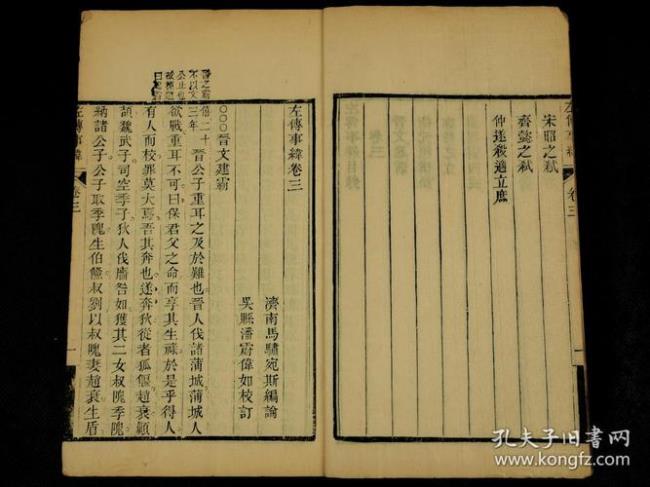 左傳事緯
卷三
宋昭之弒
齊懿之弒
仲遂殺適立庶
左傳事緯卷三
濟南馬驌宛斯編論
吳縣潘霨偉如校訂
○○○晉文建霸
僖二十三年
晉公子重耳之及於難也晉人伐諸蒲城蒲城人
欲戰重耳不可曰保君父之命而享其生祿於是乎得人
有人而校罪莫大焉吾其奔也遂奔狄從者狐偃趙衰顛
頡魏武子司空季子狄人伐廧咎如獲其二女叔隗季隗
納諸公子公子取季隗生伯儵叔劉以叔隗妻趙衰生盾
左傳事緯
卷三
孔夫子旧书网
www.kongfz.com